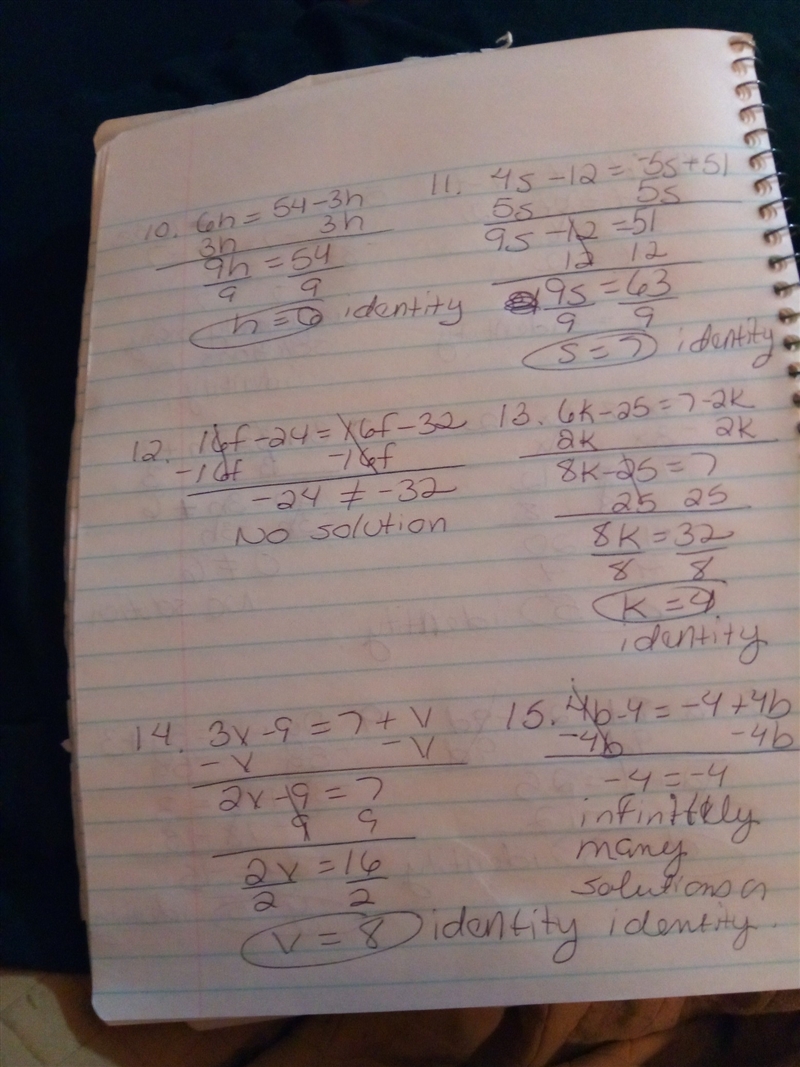 10. 6h = 54 - 3h
3h 3h
9h = 54
9 9
h = 6 identity
11. 4s - 12 = -5s + 51
5s 5s
9s - 12 = 51
12 12
9s = 63
9 9
s = 7 identity
12. 16f - 24 = 16f - 32
-16f -16f
-24 ≠ -32
No solution
13. 6k - 25 = 7 - 2k
2k 2k
8k - 25 = 7
25 25
8k = 32
8 8
k = 4
identity
14. 3v - 9 = 7 + v
- v - v
2v - 9 = 7
9 9
2v = 16
2 2
v = 8 identity
15. 4b - 4 = -4 + 4b
-4b -4b
-4 = -4
infinitely
many
solutions
identity.